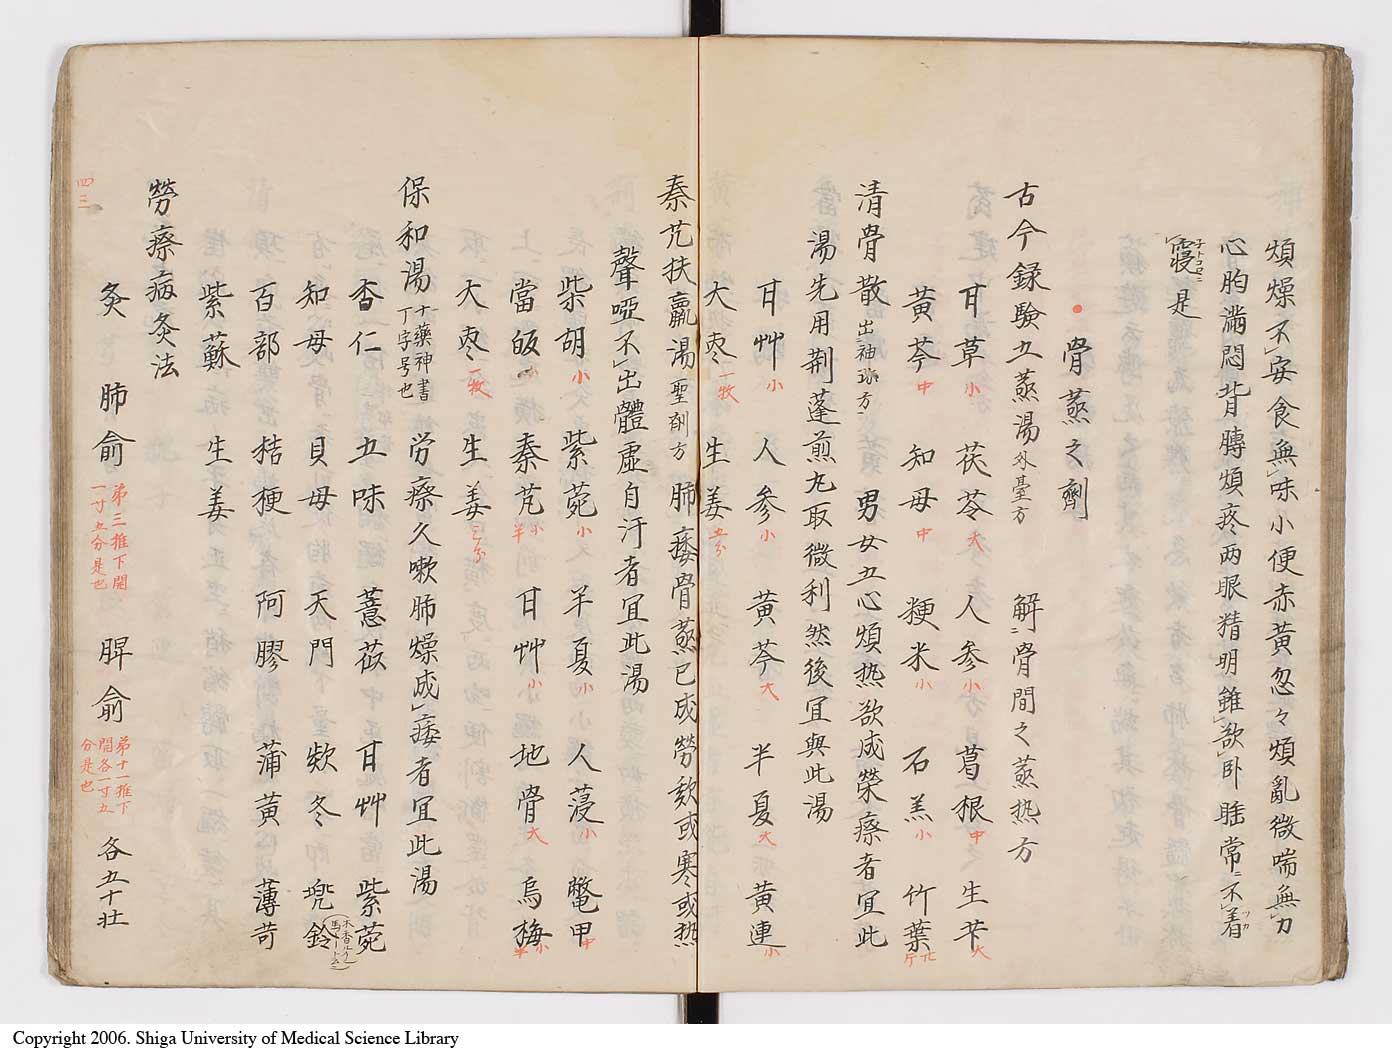 煩燥不安食無味小便赤黃忽々煩亂微喘無力
心胸滿悶背膊煩疼两眼精明雖欲卧睡常不着
寢是
骨蒸之劑
古今録驗五蒸湯外臺方 解骨間之蒸热方
甘草小 茯苓大 人参小 葛根中 生芐大
黄芩中 知母中 粳米小 石羔小 竹葉
清骨散出袖珍方 男女五心煩热欲成勞瘵者宜此
湯先用荆蓬煎丸取微利然後宜與此湯
甘艸小 人参小 黄芩大 半夏大 黄連小
大枣一枚 生姜五分
秦艽扶羸湯聖劑方 肺痿骨蒸已成勞欬或寒或热
聲啞不出體虚自汗者宜此湯
柴胡小 紫菀小 半夏小 人薓小 鼈甲中
當皈小 秦艽小半 甘艸小 地骨大 烏梅小半
大枣一枚 生姜三分
保和湯十藥神書丁字号也 労瘵久嗽肺燥成痿者宜此湯
杏仁 五味 薏苡 甘艸 紫菀
知母 貝母 天門 欵冬 兜鈴
百部 桔梗 阿膠 蒲黄 薄苛
紫蘇 生姜
勞瘵病灸法
灸 肺俞第三推下開一寸五分是也 脾俞第十一推下開各一寸五分是也 各五十壮
四三
Copyright 2006. Shiga University of Medical Science Library